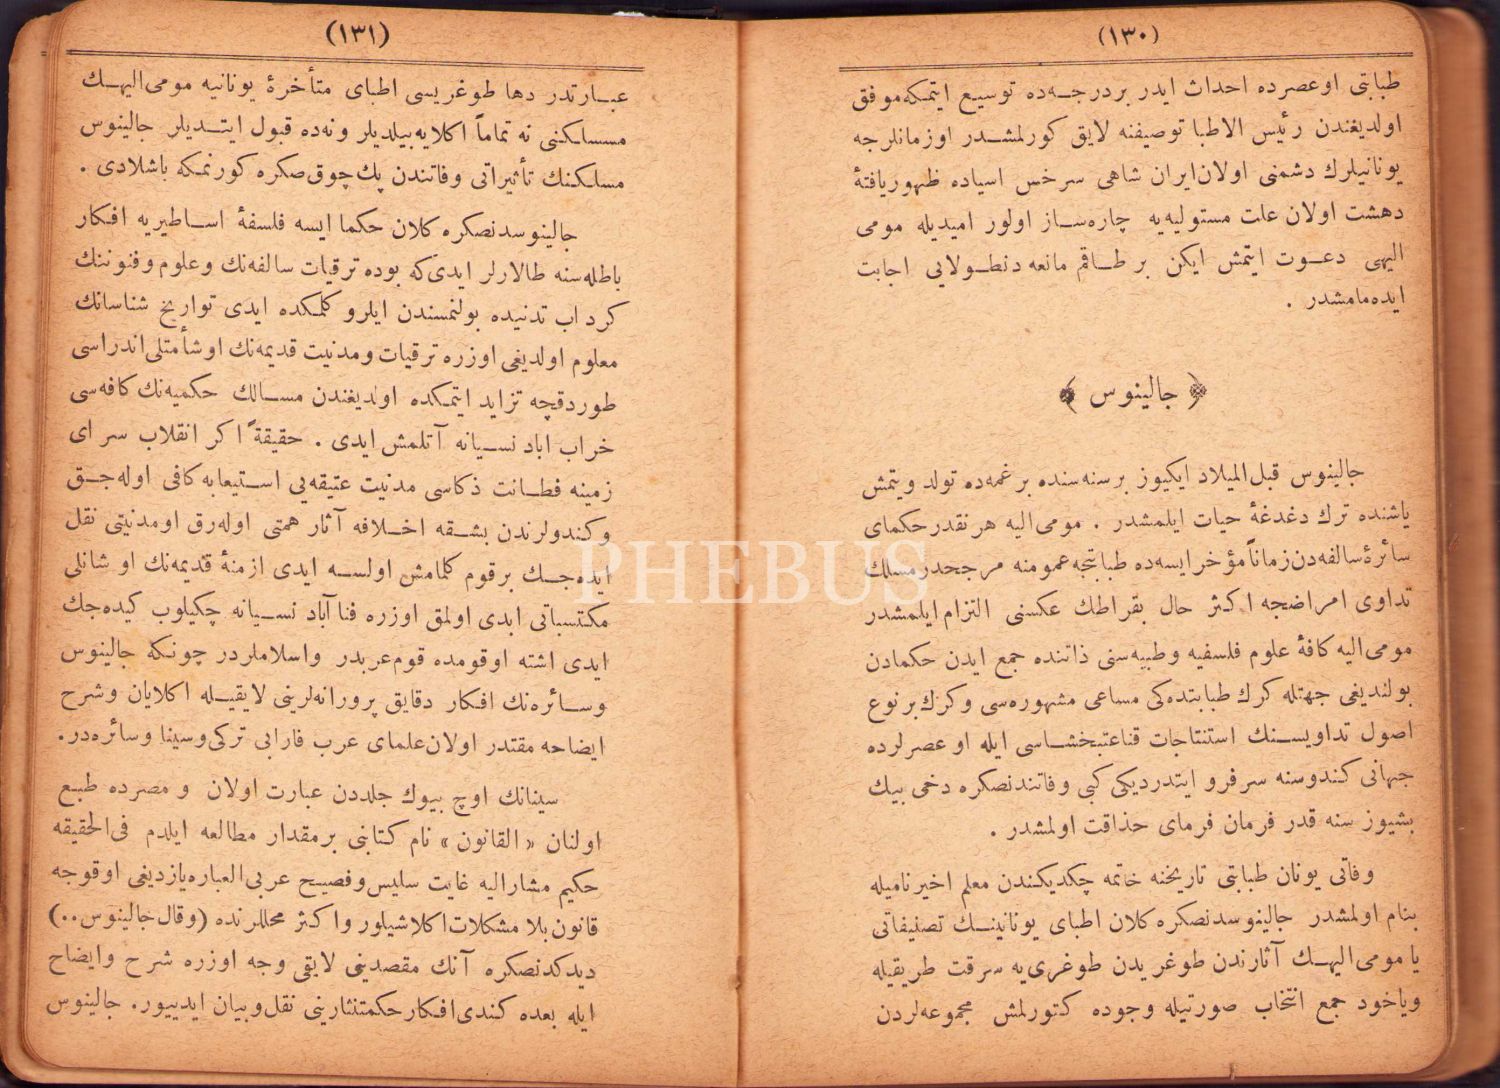 (١٣٠)
طبابتی اوعصرده احداث ایدر بردرجه‌ده توسیع ایتمکه‌موفق
اولدیغندن رئیس الاطبا توصیفنه لایق کورلمشدر اوزمانلرجه
یونانیلرك دشمنی اولان‌ایران شاهی سرخس اسیاده ظهوریافتهٔ
دهشت اولان علت مستولیه‌یه چاره‌ساز اولور امیدیله مومی
الیهی دعوت ایتمش ایکن بر طاقم مانعه‌دنطولایی اجابت
ایده‌مامشدر .
﴿ جالینوس ﴾
جالینوس قبل‌المیلاد ایکیوز برسنه‌سنده برغمه‌ده تولد ویتمش
یاشنده ترك دغدغهٔ حیات ایلمشدر . مومی‌الیه هرنقدر حکمای
سائرهٔ سالفه‌دن زماناً مؤخر ایسه‌ده طبابتجه عمومنه مرجحدر مسلك
تداوی امراضجه اکثر حال بقراطك عکسنی التزام ایلمشدر
مومی‌الیه کافهٔ علوم فلسفیه وطبیه‌سنی ذاتنده جمع ایدن حکمادن
بولندیغی جهتله کرك طبابتده‌کی مساعی مشهوره‌سی وکرك برنوع
اصول تداویسنك استنتاجات قناعتبخشاسی ایله اوعصرلرده
جهانی کندوسنه سرفرو ایتدردیکی کبی وفاتندنصکره دخی بیك
بشیوز سنه قدر فرمان فرمای حذاقت اولمشدر .
وفاتی یونان طبابتی تاریخنه خاتمه چکدیکندن معلم اخیر نامیله
بنام اولمشدر جالینوسدنصکره کلان اطبای یونانینك تصنیفاتی
یا مومی‌الیهك آثارندن طوغریدن طوغری‌یه سرقت طریقیله
ویاخود جمع انتخاب صورتیله وجوده کتورلمش مجموعه‌لردن
(١٣١)
عبارتدر دها طوغریسی اطبای متأخرهٔ یونانیه مومی‌الیهك
مسلکنی نه تماماً اکلایه‌بیلدیلر ونه‌ده قبول ایتدیلر جالینوس
مسلکنك تأثیراتی وفاتندن پك‌چوق صکره کورنمکه باشلادی .
جالینوسدنصکره کلان حکما ایسه فلسفهٔ اساطیریه افکار
باطله‌سنه طالارلر ایدی‌که بوده ترقیات سالفه‌نك وعلوم وفنوننك
کرداب تدنیده بولنمسندن ایلرو کلمکده ایدی تواریخ شناسانك
معلوم اولدیغی اوزره ترقیات ومدنیت قدیمه‌نك اوشأمتلی‌اندراسی
طوردقچه تزاید ایتمکده اولدیغندن مسالك حکمیه‌نك کافه‌سی
خراب اباد نسیانه آتلمش ایدی . حقیقةً اکر انقلاب سرای
زمینه فطانت ذکاسی مدنیت عتیقه‌یی استیعابه کافی اوله‌جق
وکندولرندن بشقه اخلافه آثار همتی اوله‌رق اومدنیتی نقل
ایده‌جك برقوم کلمامش اولسه ایدی ازمنهٔ قدیمه‌نك اوشانلی
مکتسباتی ابدی اولمق اوزره فناآباد نسیانه چکیلوب کیده‌جك
ایدی اشته اوقومده قوم‌عربدر واسلاملردر چونکه جالینوس
وسائره‌نك افکار دقایق پرورانه‌لرینی لایقیله اکلایان وشرح
ایضاحه مقتدر اولان‌علمای عرب فارابی ترکی‌وسینا وسائره‌در.
سینانك اوچ بیوك جلددن عبارت اولان ومصرده طبع
اولنان « القانون » نام کتابنی برمقدار مطالعه ایلدم فی‌الحقیقه
حکیم مشارالیه غایت سلیس‌وفصیح عربی‌العباره‌یازدیغی اوقوجه
قانون‌بلا مشکلات‌اکلاشیلور واکثر محللرنده (وقال‌جالینوس..)
دیدکدنصکره آنك مقصدینی لایقی وجه اوزره شرح وایضاح
ایله بعده کندی‌افکار حکمتنثارینی نقل‌وبیان ایدییور. جالینوس
PHEBUS